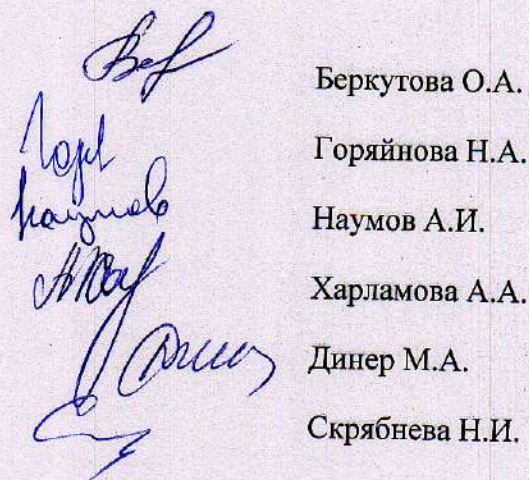 Беркутова О.А.
Горяйнова Н.А.
Наумов А.И.
Харламова А.А.
Динер М.А.
Скрябнева Н.И.